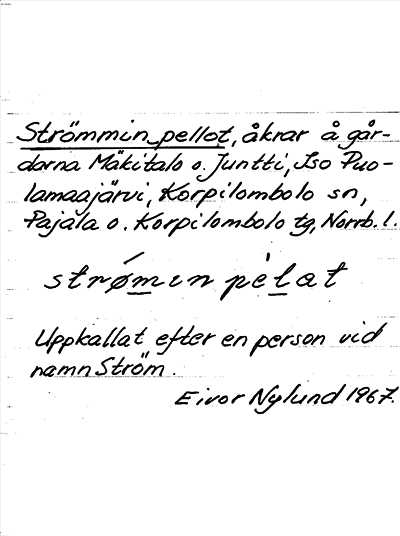 Strömmin pellot, åkrar å går-
darna Mäkitalo o. Juntti, Iso Puo-
lamaajärvi, Korpilombolo sn,
Pajala o. Korpilombolo tg, Norrb. l.
strǿmin pèlat
Uppkallat efter en person vid
namn Ström.
Eivor Nylund 1967.